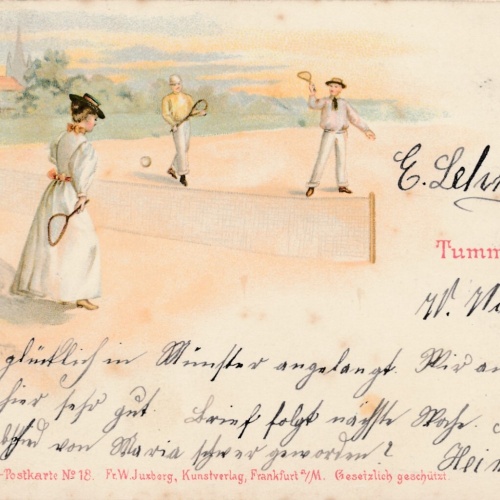 E. Leh
Tumm
W. W
glücklich in Münster angelangt. Wir
hier sehr gut. Brief folgt nächste Woche.
von Maria schwer geworden?
Hei
-Postkarte No 18. Fr. W. Juxberg, Kunstverlag, Frankfurt a/M. Gesetzlich geschützt.